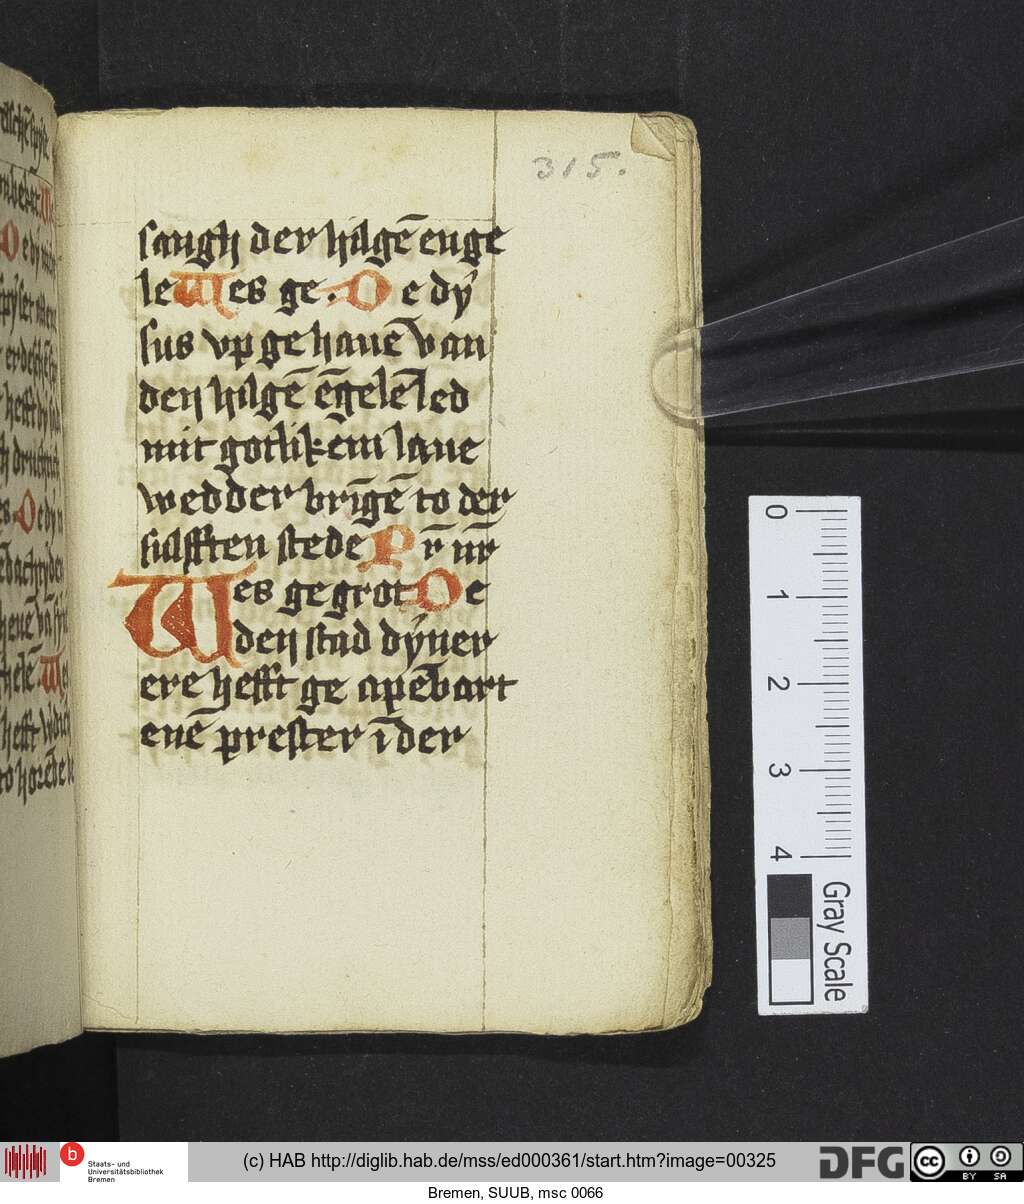 315.
sangh der hilgē enge
le Wes ge. O e dẏ
sus vp ge hauē van
den hilgē ēgelē led
mit gotlikem laue
wedder brīgē to der
sulfften stede P r̄ nr̄
Wes gegrot O e
den stad dẏner
ere hefft ge apēbart
enē prester ī der
0
1
2
3
4
Gray Scale
b Staats- und
Universitätsbibliothek
Bremen
(c) HAB http://diglib.hab.de/mss/ed000361/start.htm?image=00325
DFG
cc BY SA
Bremen, SUUB, msc 0066